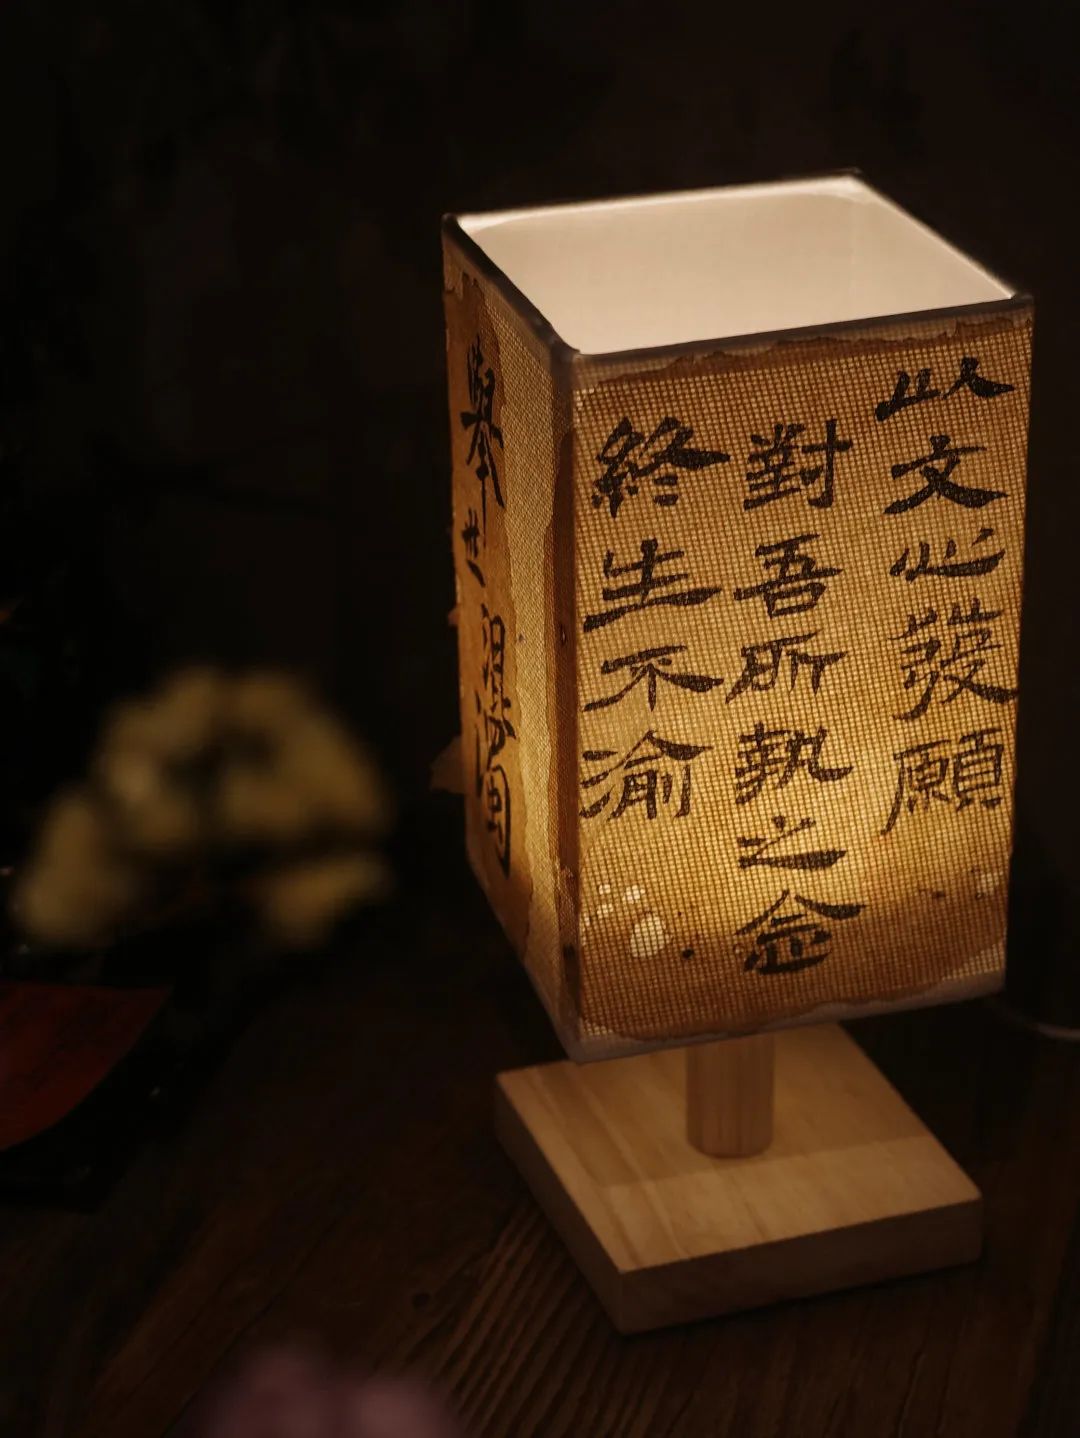 以文心發願
對吾所執之念
終生不渝
舉世混濁